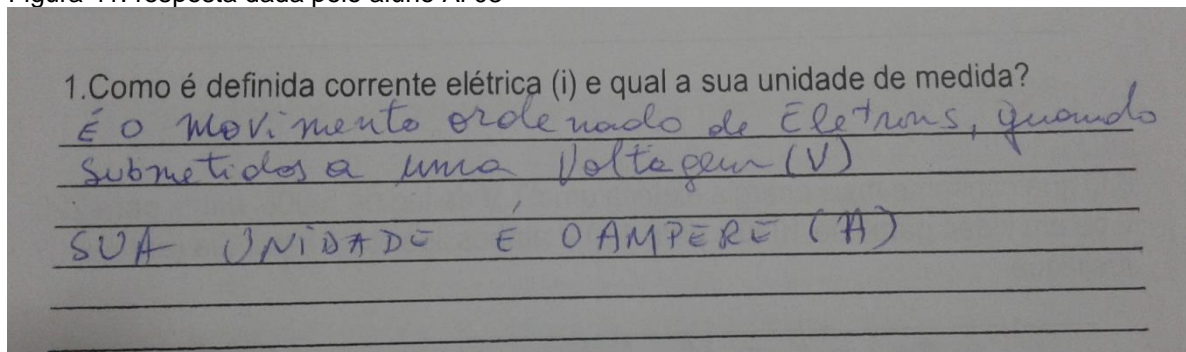 1.Como é definida corrente elétrica (i) e qual a sua unidade de medida?
É o movimento ordenado de Eletrons, quando
submetidos a uma Voltagem (V)
SUA UNIDADE É O AMPERE (A)